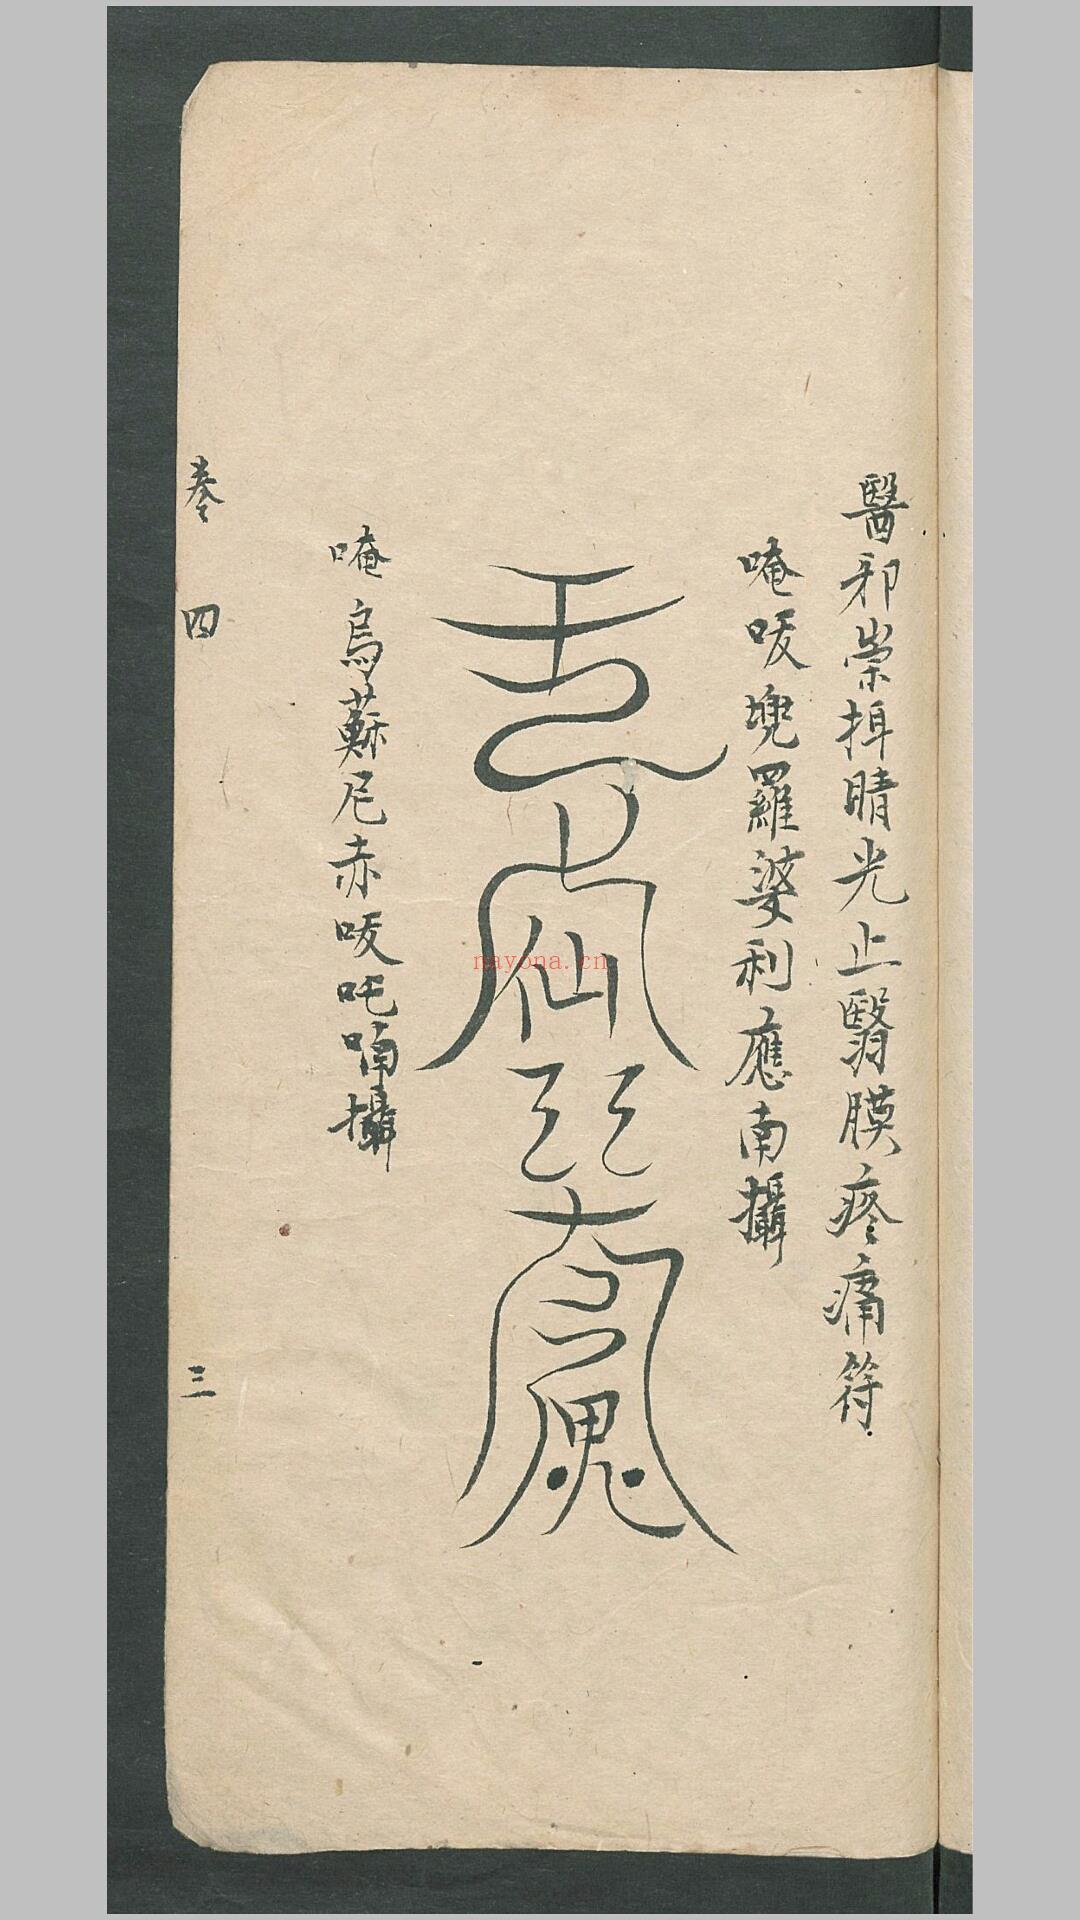 醫邪祟揖睛光止翳膜疼痛符
唵㗚㘓羅婆利應南攝
仙
唵烏蘇尼赤㗚吒喃攝
卷四
三
nayona.cn